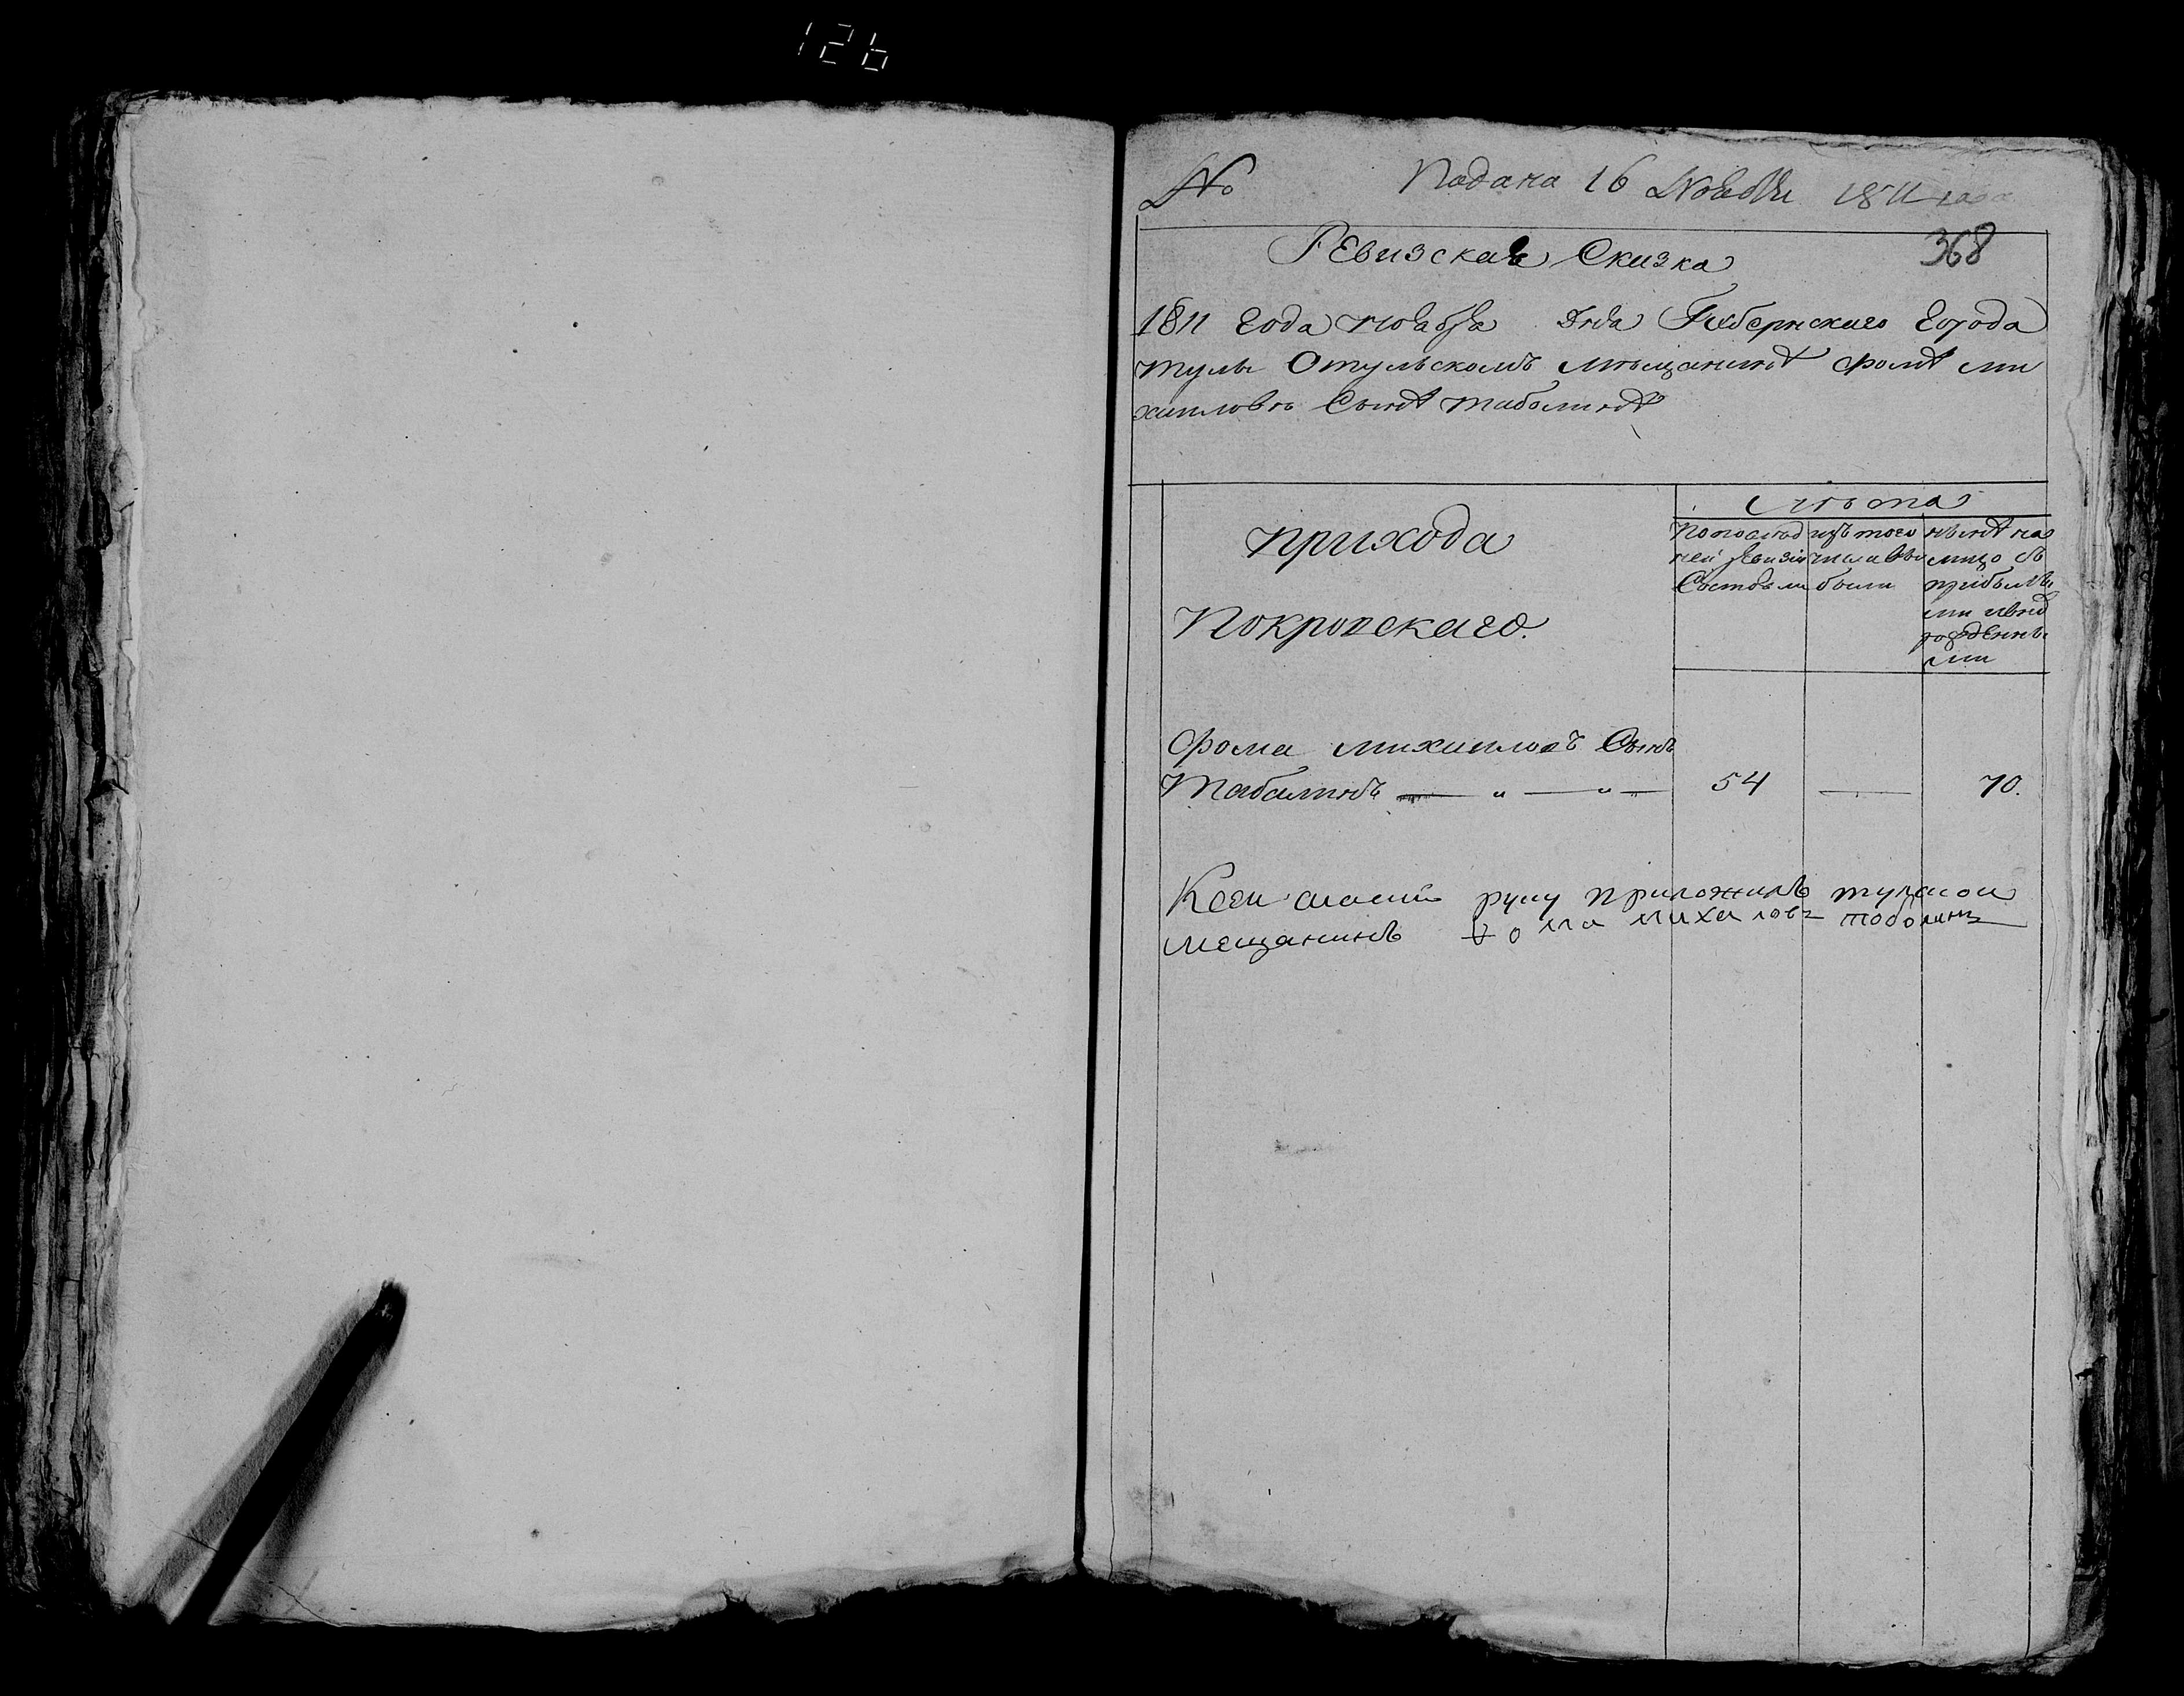 126
№ Подана 16 Ноября 1811 года
368
Ревизская Сказка
1811 года ноября дня Губернскаго города
тулы Отульскомъ мѣщанинѣ фомѣ ми
хаиловѣ Сынѣ таболинѣ
прихода
Покровскаго.
Лѣта
Попослѣд
ней ревизіи
Состояли
изъ того
числа вы
были
нынѣ на
лицо съ
прибылы
ми и внов
рожденны
ми
фома михаиловъ Сынъ
Таболинъ — " — " — 54 — 70.
Ксеи скаски руку приложилъ тулскои
мещанинъ ѳома михаловъ тоболинъ